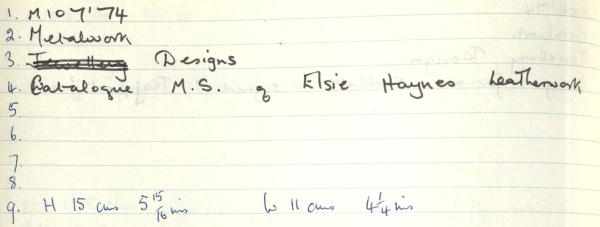 1. M107'74
2. Metalwork
3. Jewellery Designs
4. Catalogue M.S. of Elsie Haynes Leatherwork
5.
6.
7.
8.
9. H 15 cms 5 15/16 ins W 11 cms 4 1/4 ins